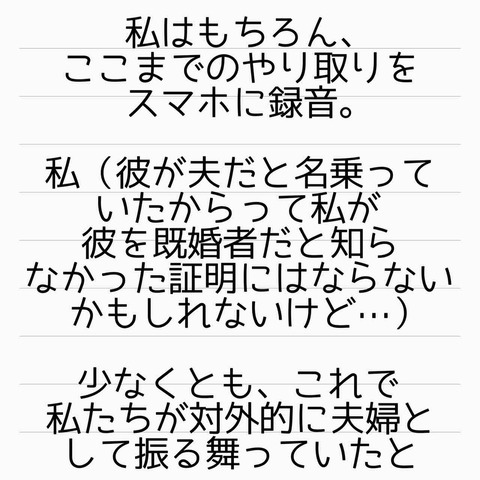 私はもちろん、
ここまでのやり取りを
スマホに録音。
私（彼が夫だと名乗って
いたからって私が
彼を既婚者だと知ら
なかった証明にはならない
かもしれないけど…）
少なくとも、これで
私たちが対外的に夫婦と
して振る舞っていたと